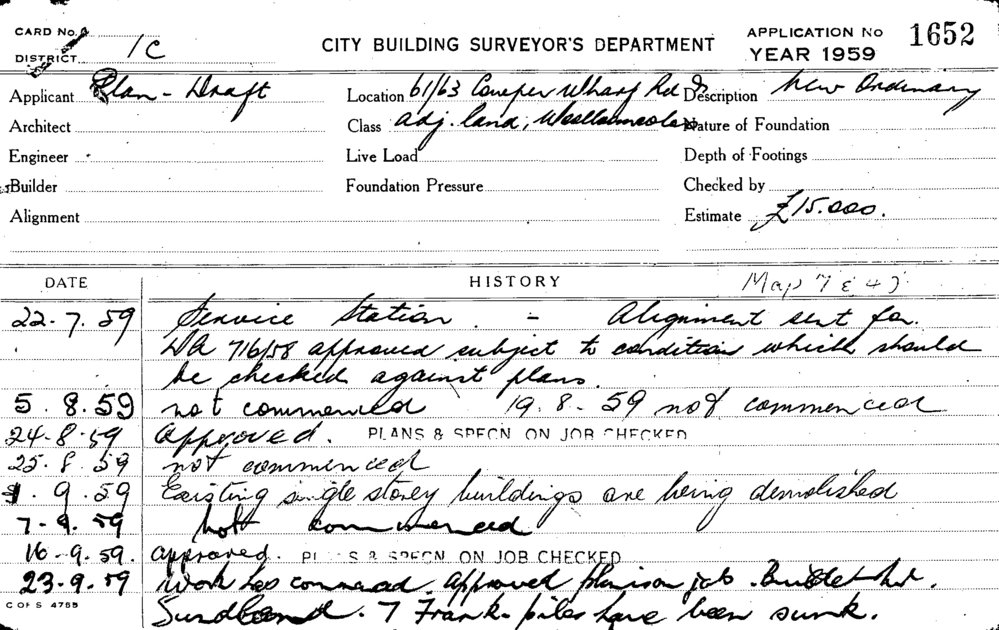 CARD No.
DISTRICT 1C
CITY BUILDING SURVEYOR'S DEPARTMENT
APPLICATION No 1652
YEAR 1959
Applicant Plan - Draft
Location 61/63 Cowper Wharf Rd &
Description New Ordinary
Architect
Class adj. land, Woolloomooloo
Nature of Foundation
Engineer
Live Load
Depth of Footings
Builder
Foundation Pressure
Checked by
Alignment
Estimate £15.000.
DATE HISTORY Map 7 & 47
22.7.59 Service Station. - Alignment sent for.
DA 716/58 approved subject to condition which should
be checked against plans.
5.8.59 not commenced 19.8-59 not commenced
24-8-59 approved. PLANS & SPECN. ON JOB CHECKED
25.8.59 not commenced
1.9.59 Existing single storey buildings are being demolished
7-9.59 not commenced
16-9.59. approved. PLANS & SPECN. ON JOB CHECKED
23-9.59 Work has commenced. Approved plans on job. Builder Mr.
7 Frank- piles have been sunk.
C OF S 4755